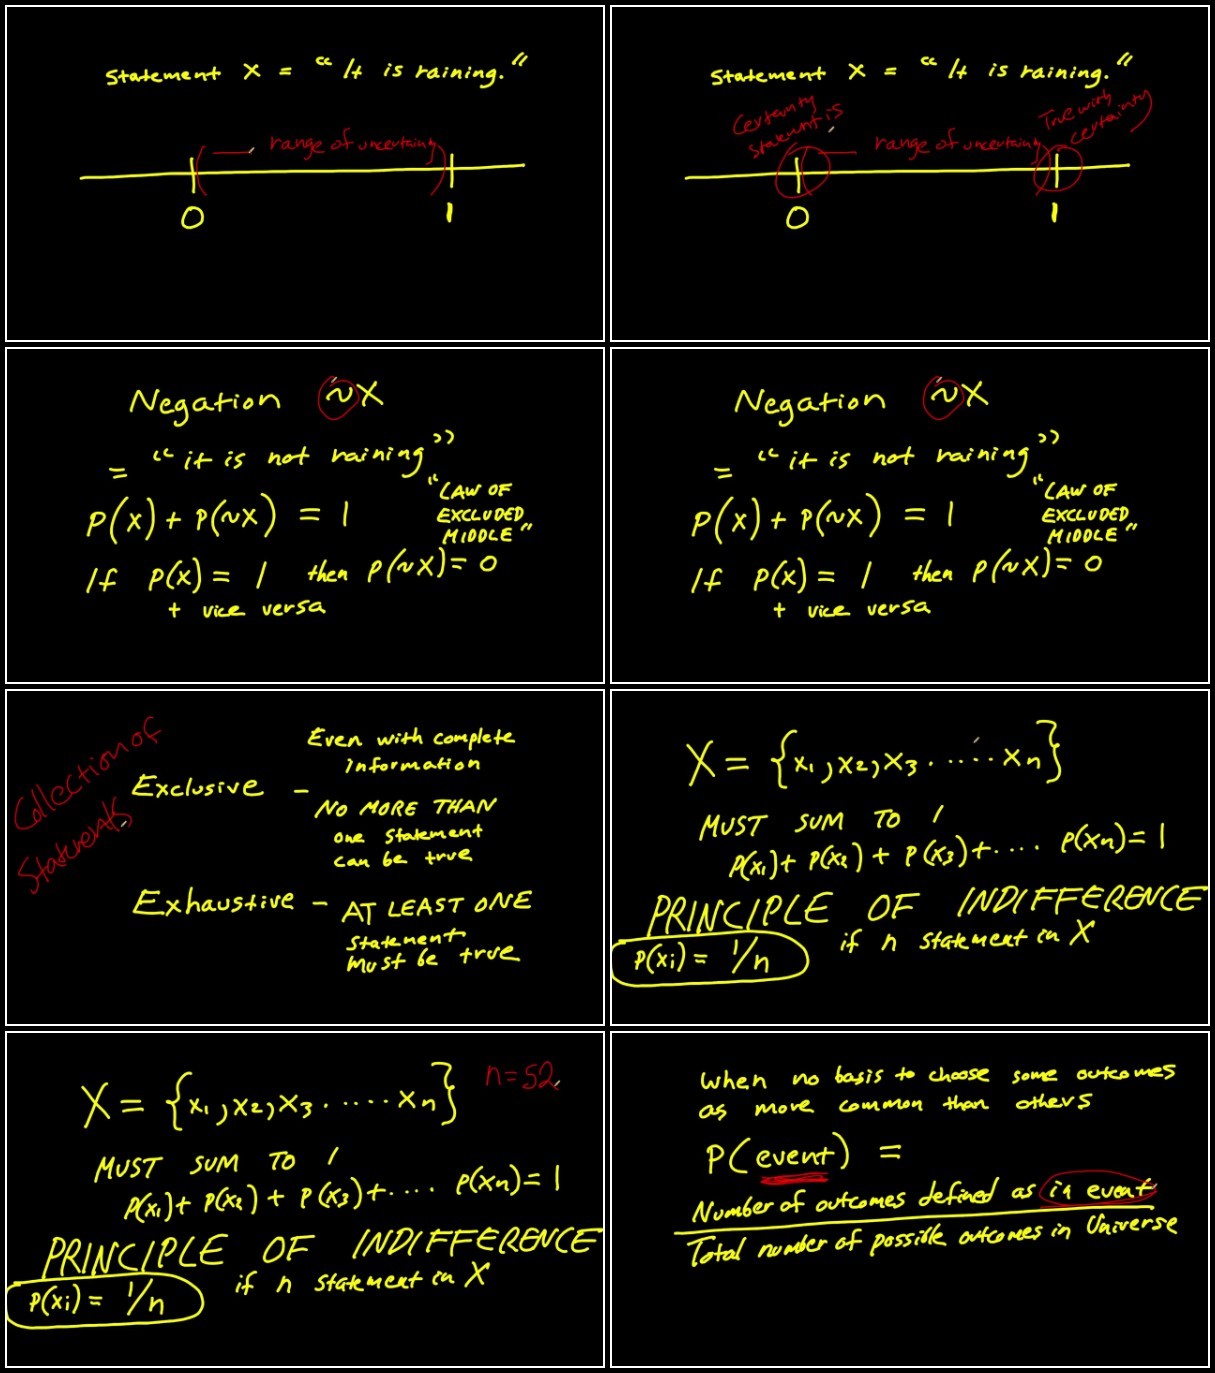 Statement X = "It is raining."
range of uncertainty
0 1
Statement X = "It is raining."
Certainty statement is
True with certainty
range of uncertainty
0 1
Negation ~X
= "it is not raining"
P(x) + P(~x) = 1
"LAW OF EXCLUDED MIDDLE"
If P(x) = 1 then P(~x) = 0
+ vice versa
Negation ~X
= "it is not raining"
P(x) + P(~x) = 1
"LAW OF EXCLUDED MIDDLE"
If P(x) = 1 then P(~x) = 0
+ vice versa
Collection of
Statements
Exclusive - Even with complete
information
NO MORE THAN
one statement
can be true
Exhaustive - AT LEAST ONE
statement
must be true
X = {x1, x2, x3 ...... xn}
MUST SUM TO 1
P(x1) + P(x2) + P(x3) + .... P(xn) = 1
PRINCIPLE OF INDIFFERENCE
if n statement in X
P(xi) = 1/n
X = {x1, x2, x3 ...... xn}
n=52
MUST SUM TO 1
P(x1) + P(x2) + P(x3) + .... P(xn) = 1
PRINCIPLE OF INDIFFERENCE
if n statement in X
P(xi) = 1/n
When no basis to choose some outcomes
as more common than others
P(event) =
Number of outcomes defined as in event
Total number of possible outcomes in Universe